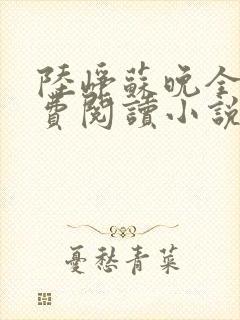 陸崢蘇晚全
費閱讀小說
憂愁青菜